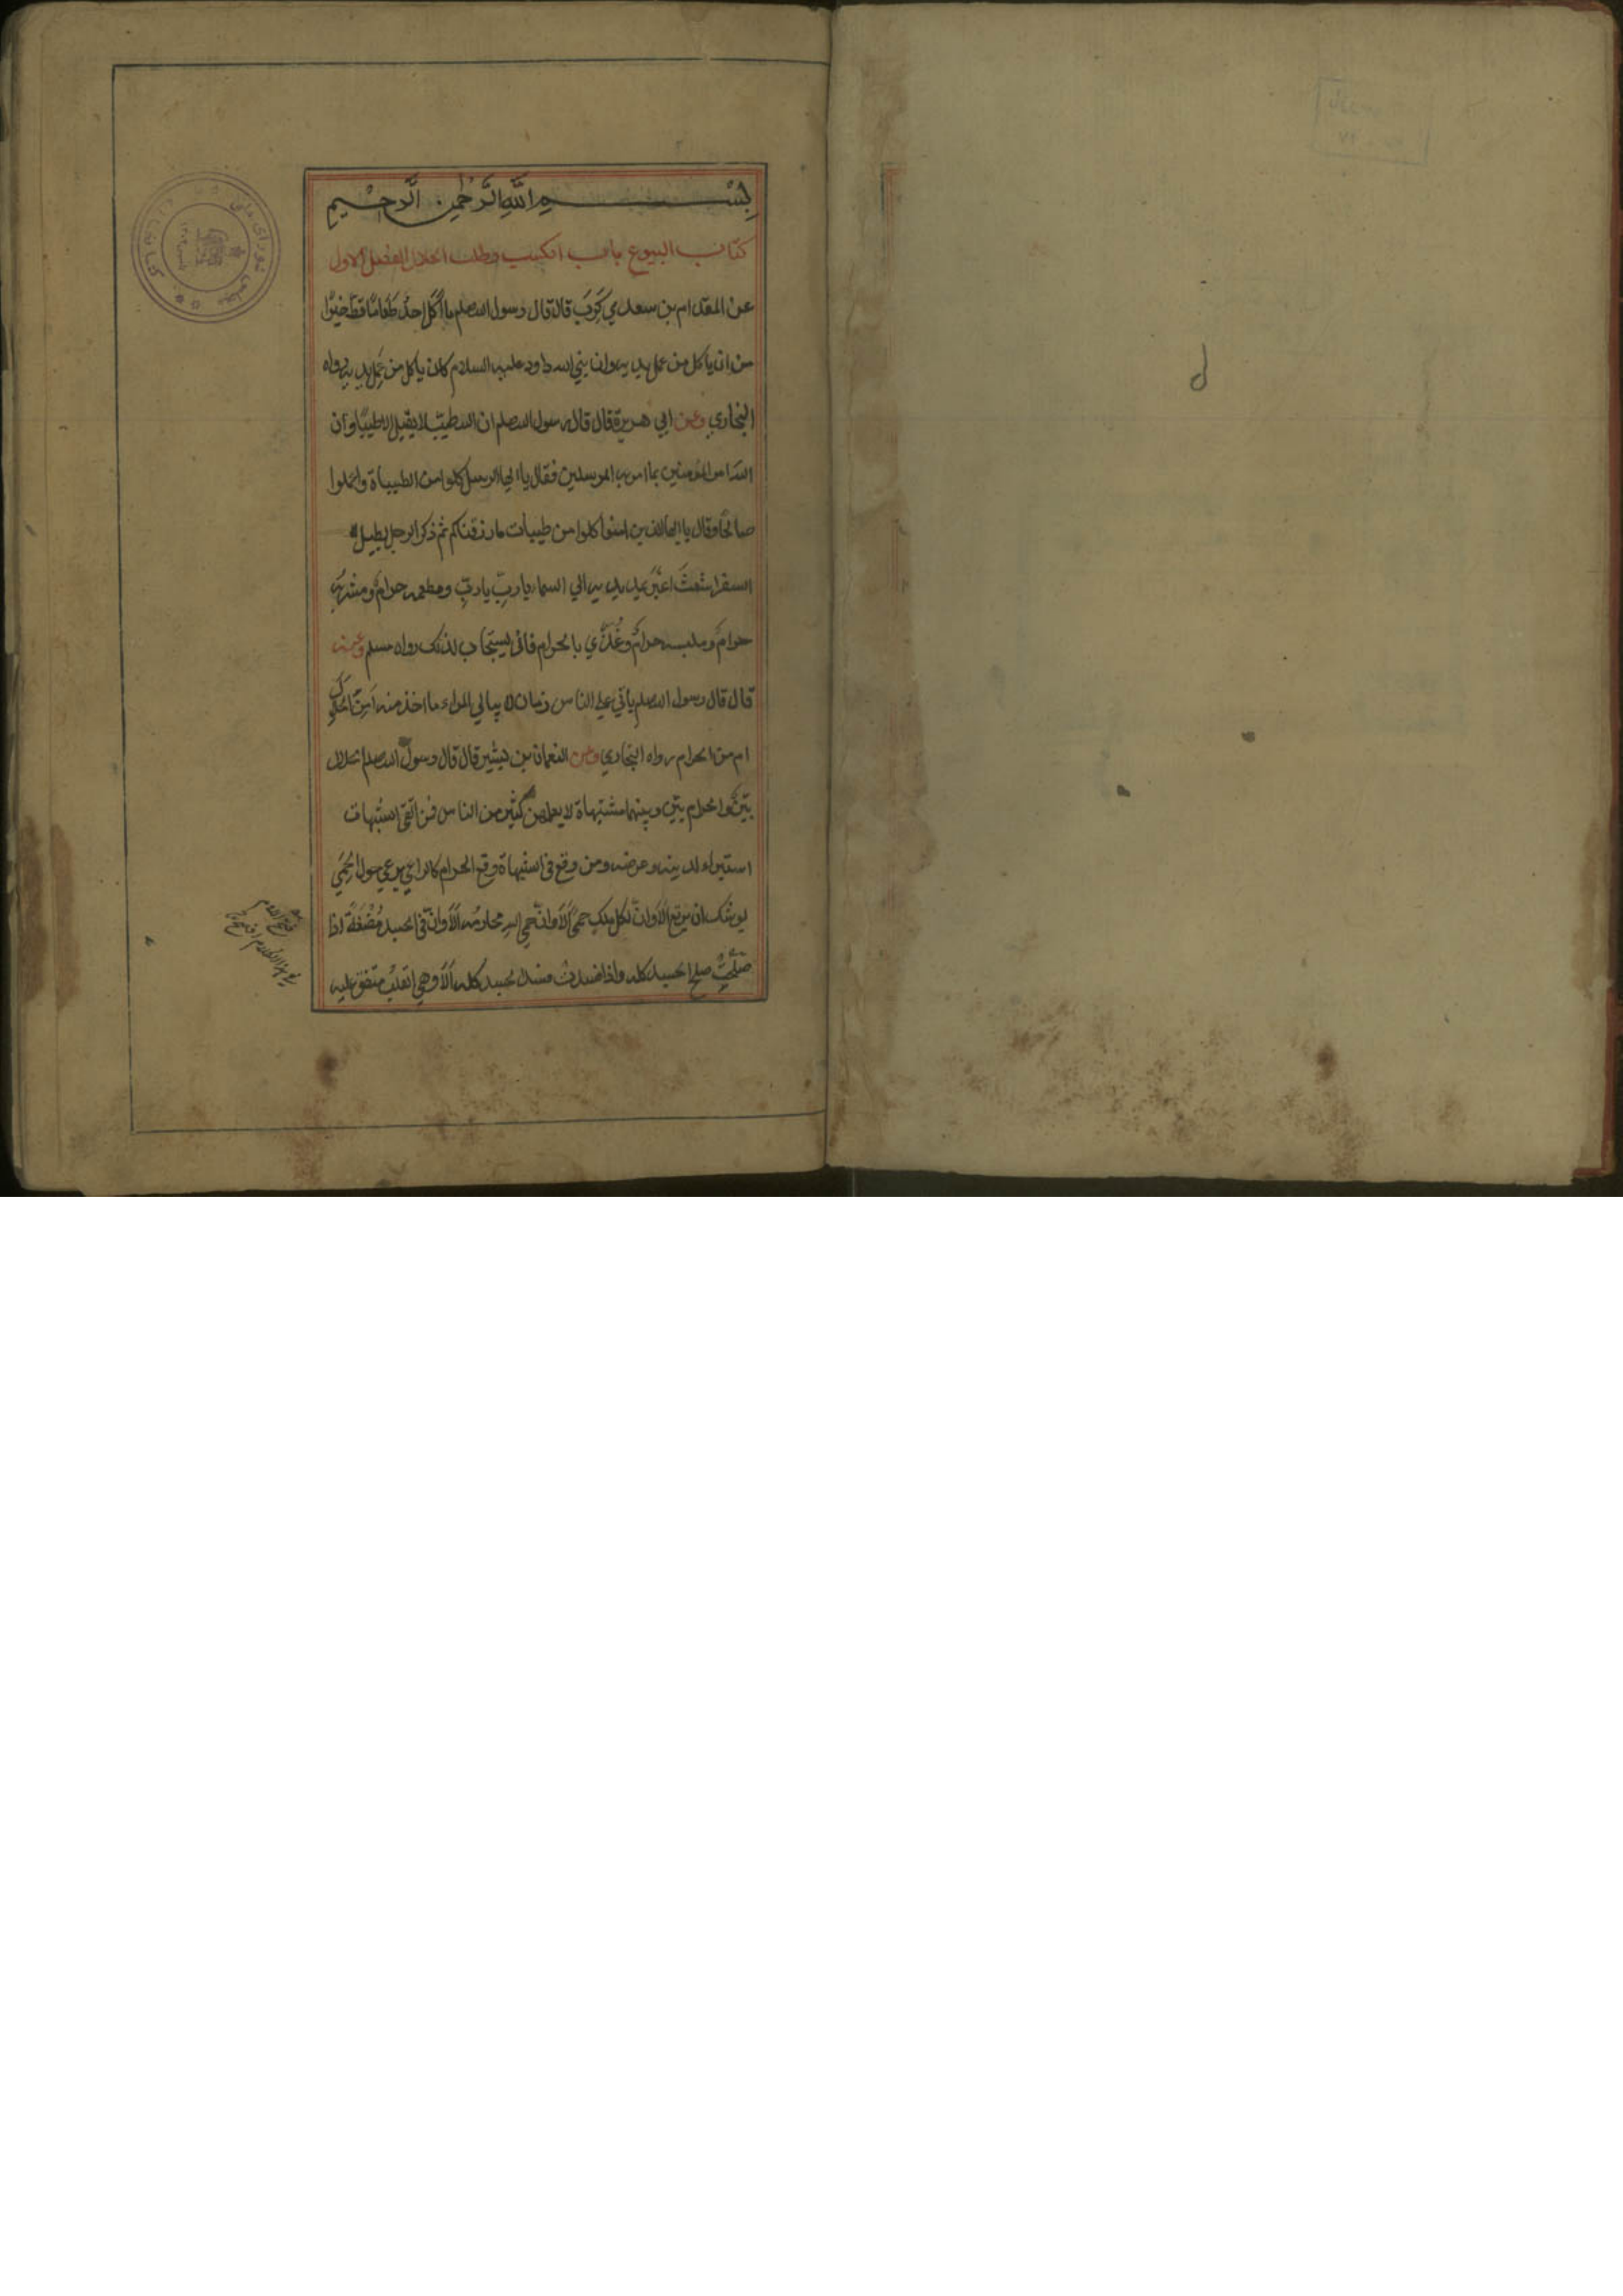 بِسْــــمِ اللّٰهِ الرَّحْمٰنِ الرَّحِيْمِ
كتاب البيوع باب الكسب وطلب الحلال الفصل الاول
عن المقدام بن معدي كَرِبَ قال قال رسول الله صلعم ما اَكَلَ احدٌ طَعَامًا قَطُّ خَيْرًا
من ان ياكل من عمل يديه وان نبي الله داود عليه السلام كان ياكل من عَمَلِ يديه رواه
البخاري وعن ابي هريرة قال قال رسول الله صلعم ان الله طيّب لا يقبل الا طيبًا وان
الله امر المؤمنين بما امر به المرسلين فقال يا ايها الرسل كلوا من الطيباة واعملوا
صالحًا وقال يا ايها الذين امنوا كلوا من طيبات ما رزقناكم ثم ذكر الرجل يطيل
السفر اشعثَ اغبَرَ يمد يديه الي السماء يا ربِّ يا ربِّ ومطعمه حرامٌ ومشربُه
حرامٌ وملبسه حرامٌ وغُذِّي بالحرام فانّى يستجاب لذلك رواه مسلم وعنه
قال قال رسول الله صلعم ياتي على الناس زمان لا يبالي المراء ما اخذ منه اَمِنَ الحلال
ام من الحرام رواه البخاري وعن النعمان بن بشير قال قال رسول الله صلعم الحلال
بيّنٌ والحرام بيّن وبينهما مشتبهاة لا يعلمهن كثير من الناس فمن اتّقى الشبهات
استبراء لدينه وعرضه ومن وقع في الشبهاة وقع الحرام كالراعي يرعى حول الحِمَي
يوشك ان يرتع اَلَا وانّ لكل ملك حمىً اَلَا وانّ حمي الله محارمُه اَلَا وانّ في الجسد مُضْغَةً اذا
صلُحتْ صلح الجسد كله واذا فسدت فسد الجسد كله اَلَا وهي القلبُ متفق عليه